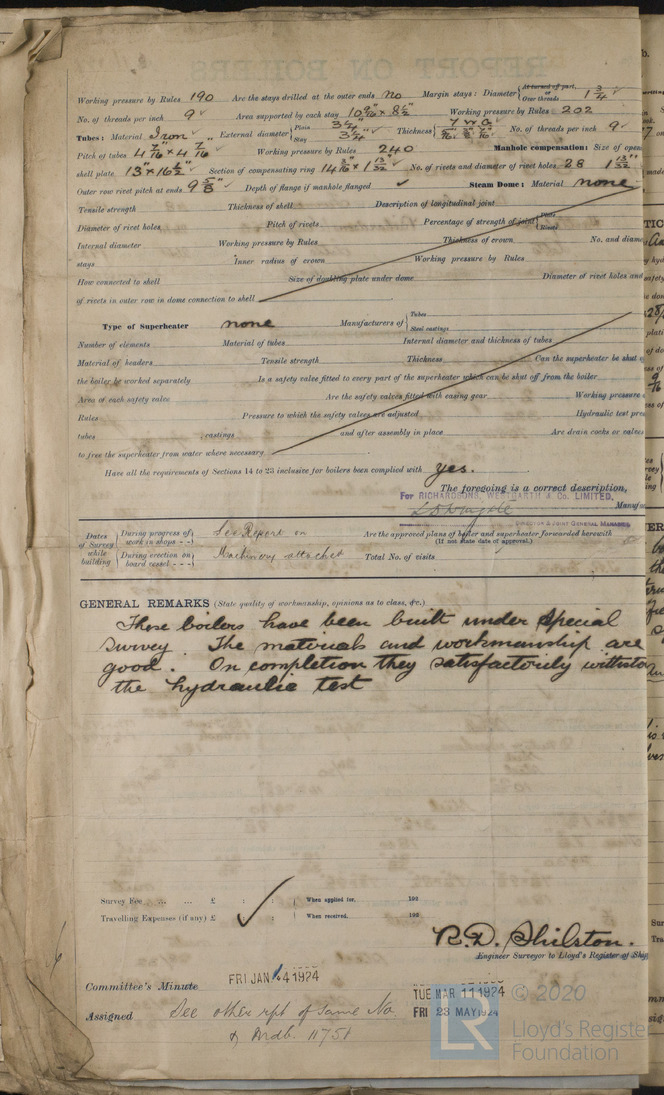 Working pressure by Rules 190 Are the stays drilled at the outer ends No Margin stays: Diameter { At turned off part, or Over threads 1 3/4"
No. of threads per inch 9 Area supported by each stay 10 9/16" × 8 1/2" Working pressure by Rules 202
Tubes: Material Iron External diameter { Plain 3 1/4" Stay 3 1/4" Thickness { 7 W.G. No. of threads per inch 9
Pitch of tubes 4 7/16 × 4 7/16" Working pressure by Rules 240 Manhole compensation: Size of open
shell plate 13" × 16 1/2" Section of compensating ring No. of rivets and diameter of rivet holes 28 1 13/32"
Outer row rivet pitch at ends 9 5/8" Depth of flange if manhole flanged ✓ Steam Dome: Material none
Tensile strength Thickness of shell Description of longitudinal joint
Diameter of rivet holes Pitch of rivets Percentage of strength of joint { Plate Rivets
Internal diameter Working pressure by Rules Thickness of crown No. and diame
stays Inner radius of crown Working pressure by Rules
How connected to shell Size of doubling plate under dome Diameter of rivet holes and
of rivets in outer row in dome connection to shell
Type of Superheater none Manufacturers of { Tubes Steel castings
Number of elements Material of tubes Internal diameter and thickness of tubes
Material of headers Tensile strength Thickness Can the superheater be shut o
the boiler be worked separately Is a safety valve fitted to every part of the superheater which can be shut off from the boiler
Area of each safety valve Are the safety valves fitted with easing gear Working pressure
Rules Pressure to which the safety valves are adjusted Hydraulic test pre
tubes castings and after assembly in place Are drain cocks or valves
to free the superheater from water where necessary
Have all the requirements of Sections 14 to 23 inclusive for boilers been complied with yes.
The foregoing is a correct description,
For RICHARDSONS, WESTGARTH & Co. LIMITED,
Manuf
DIRECTOR & JOINT GENERAL MANAGER
Dates of Survey while building { During progress of work in shops - - See Report on Are the approved plans of boiler and superheater forwarded herewith
(If not state date of approval.)
During erection on board vessel - - - Machinery attached Total No. of visits
GENERAL REMARKS (State quality of workmanship, opinions as to class, &c.)
These boilers have been built under special
survey. The materials and workmanship are
good. On completion they satisfactorily withsto
the hydraulic test
Survey Fee ... ... £ : : When applied for, 192
Travelling Expenses (if any) £ : : When received, 192
R.D. Shilston.
Engineer Surveyor to Lloyd's Register of Ship
Committee's Minute FRI JAN 4 1924 TUE MAR 11 1924
Assigned See other rpt of same No. FRI 23 MAY 1924
& Mdb. 11751
© 2020
LR
Lloyd's Registe
Foundation